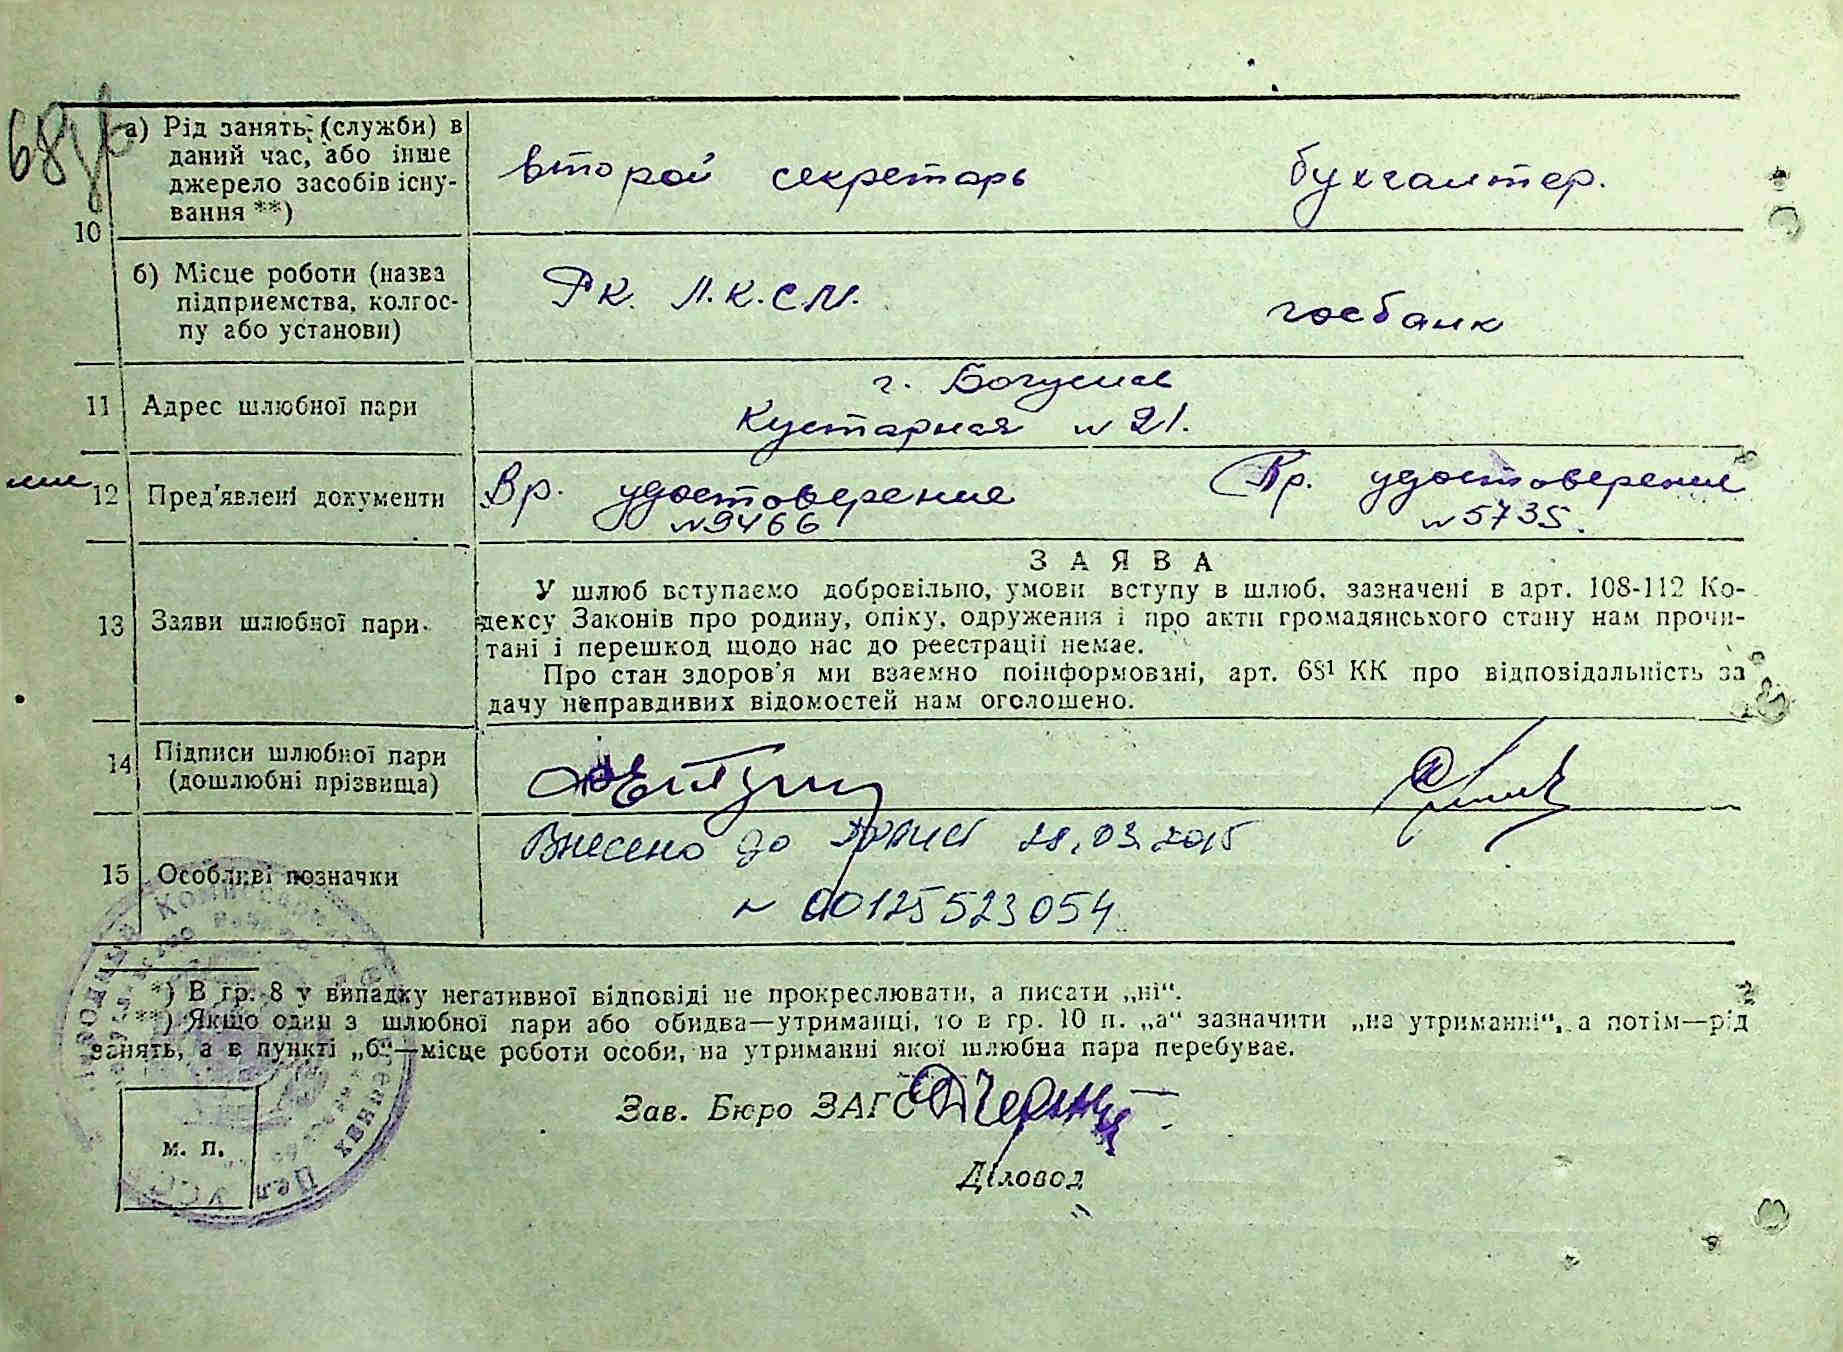 а) Рід занять, (служби) в
даний час, або інше
джерело засобів існу-
вання **)
второй секретарь бухгалтер.
10
б) Місце роботи (назва
підприємства, колгос-
пу або установи)
Рк. Л.К.С.М. госбанк
11 Адрес шлюбної пари
г. Богуслав
Кустарная № 21.
12 Пред'явлені документи
Вр. удостоверение Вр. удостоверение
№ 9466 № 5735.
13 Заяви шлюбної пари.
ЗАЯВА
У шлюб вступаємо добровільно, умови вступу в шлюб, зазначені в арт. 108-112 Ко-
дексу Законів про родину, опіку, одруження і про акти громадянського стану нам прочи-
тані і перешкод щодо нас до реєстрації немає.
Про стан здоров'я ми взаємно поінформовані, арт. 68¹ КК про відповідальність за
дачу неправдивих відомостей нам оголошено.
14 Підписи шлюбної пари
(дошлюбні прізвища)
15 Особливі позначки
Внесено до 28.03.2015
№ 00125523054
*) В гр. 8 у випадку негативної відповіді не прокреслювати, а писати „ні“.
**) Якщо один з шлюбної пари або обидва—утриманці, то в гр. 10 п. „а“ зазначити „на утриманні“, а потім—рід
занять, а в пункті „б“—місце роботи особи, на утриманні якої шлюбна пара перебуває.
Зав. Бюро ЗАГС
Діловод
м. п.